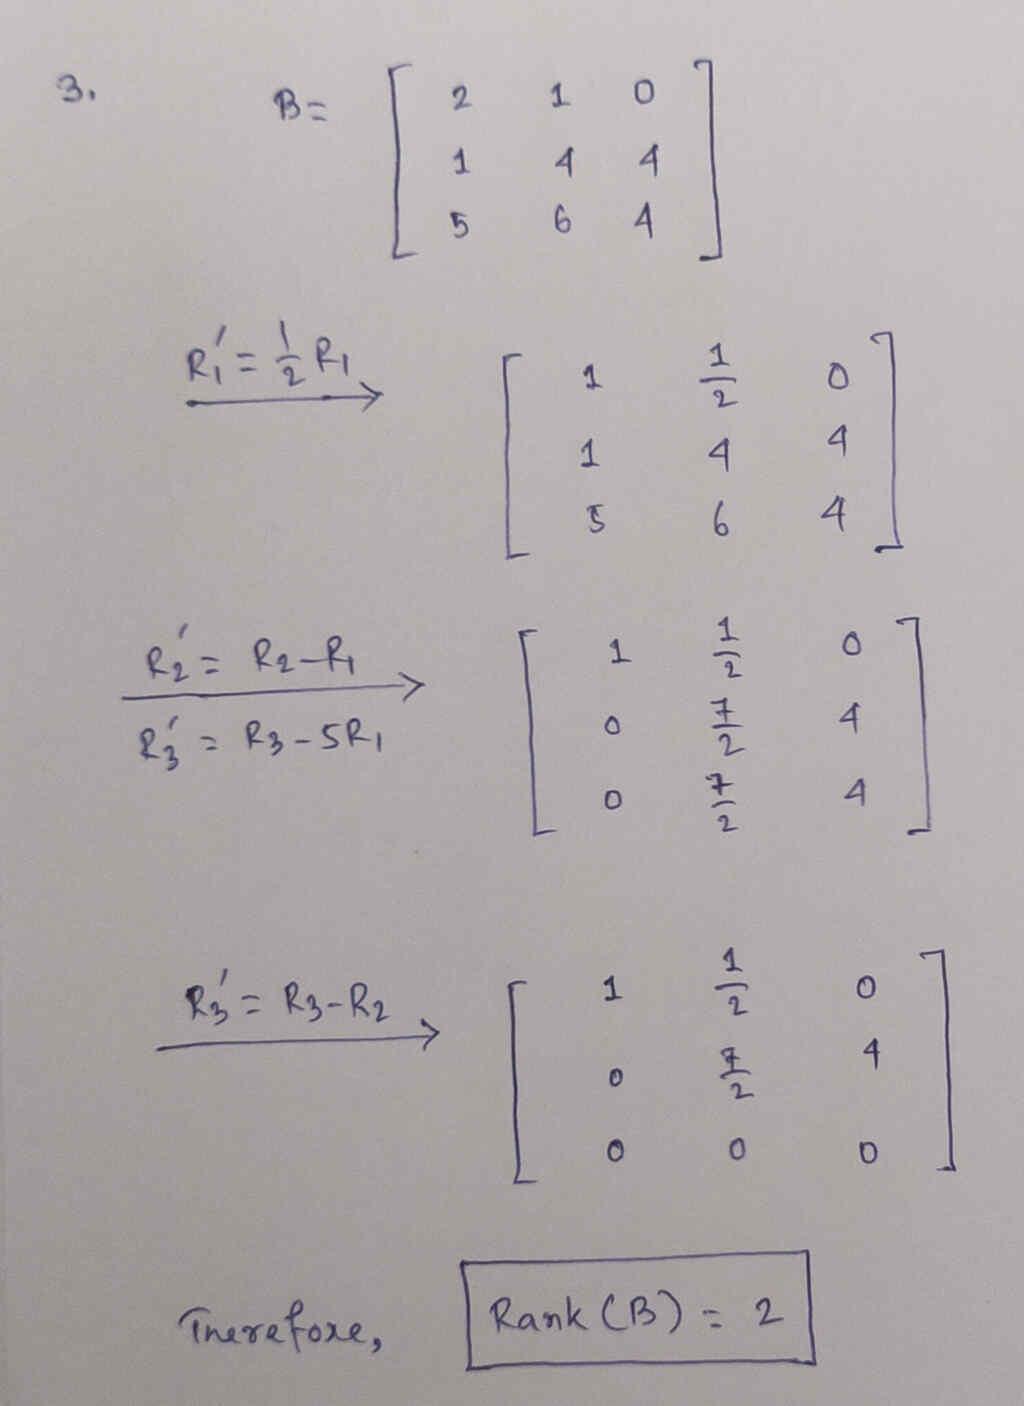 3. B = [ 2 1 0
1 4 4
5 6 4 ]
R₁' = 1/2 R₁ → [ 1 1/2 0
1 4 4
5 6 4 ]
R₂' = R₂ - R₁ → [ 1 1/2 0
R₃' = R₃ - 5R₁ 0 7/2 4
0 7/2 4 ]
R₃' = R₃ - R₂ → [ 1 1/2 0
0 7/2 4
0 0 0 ]
Therefore, Rank (B) = 2